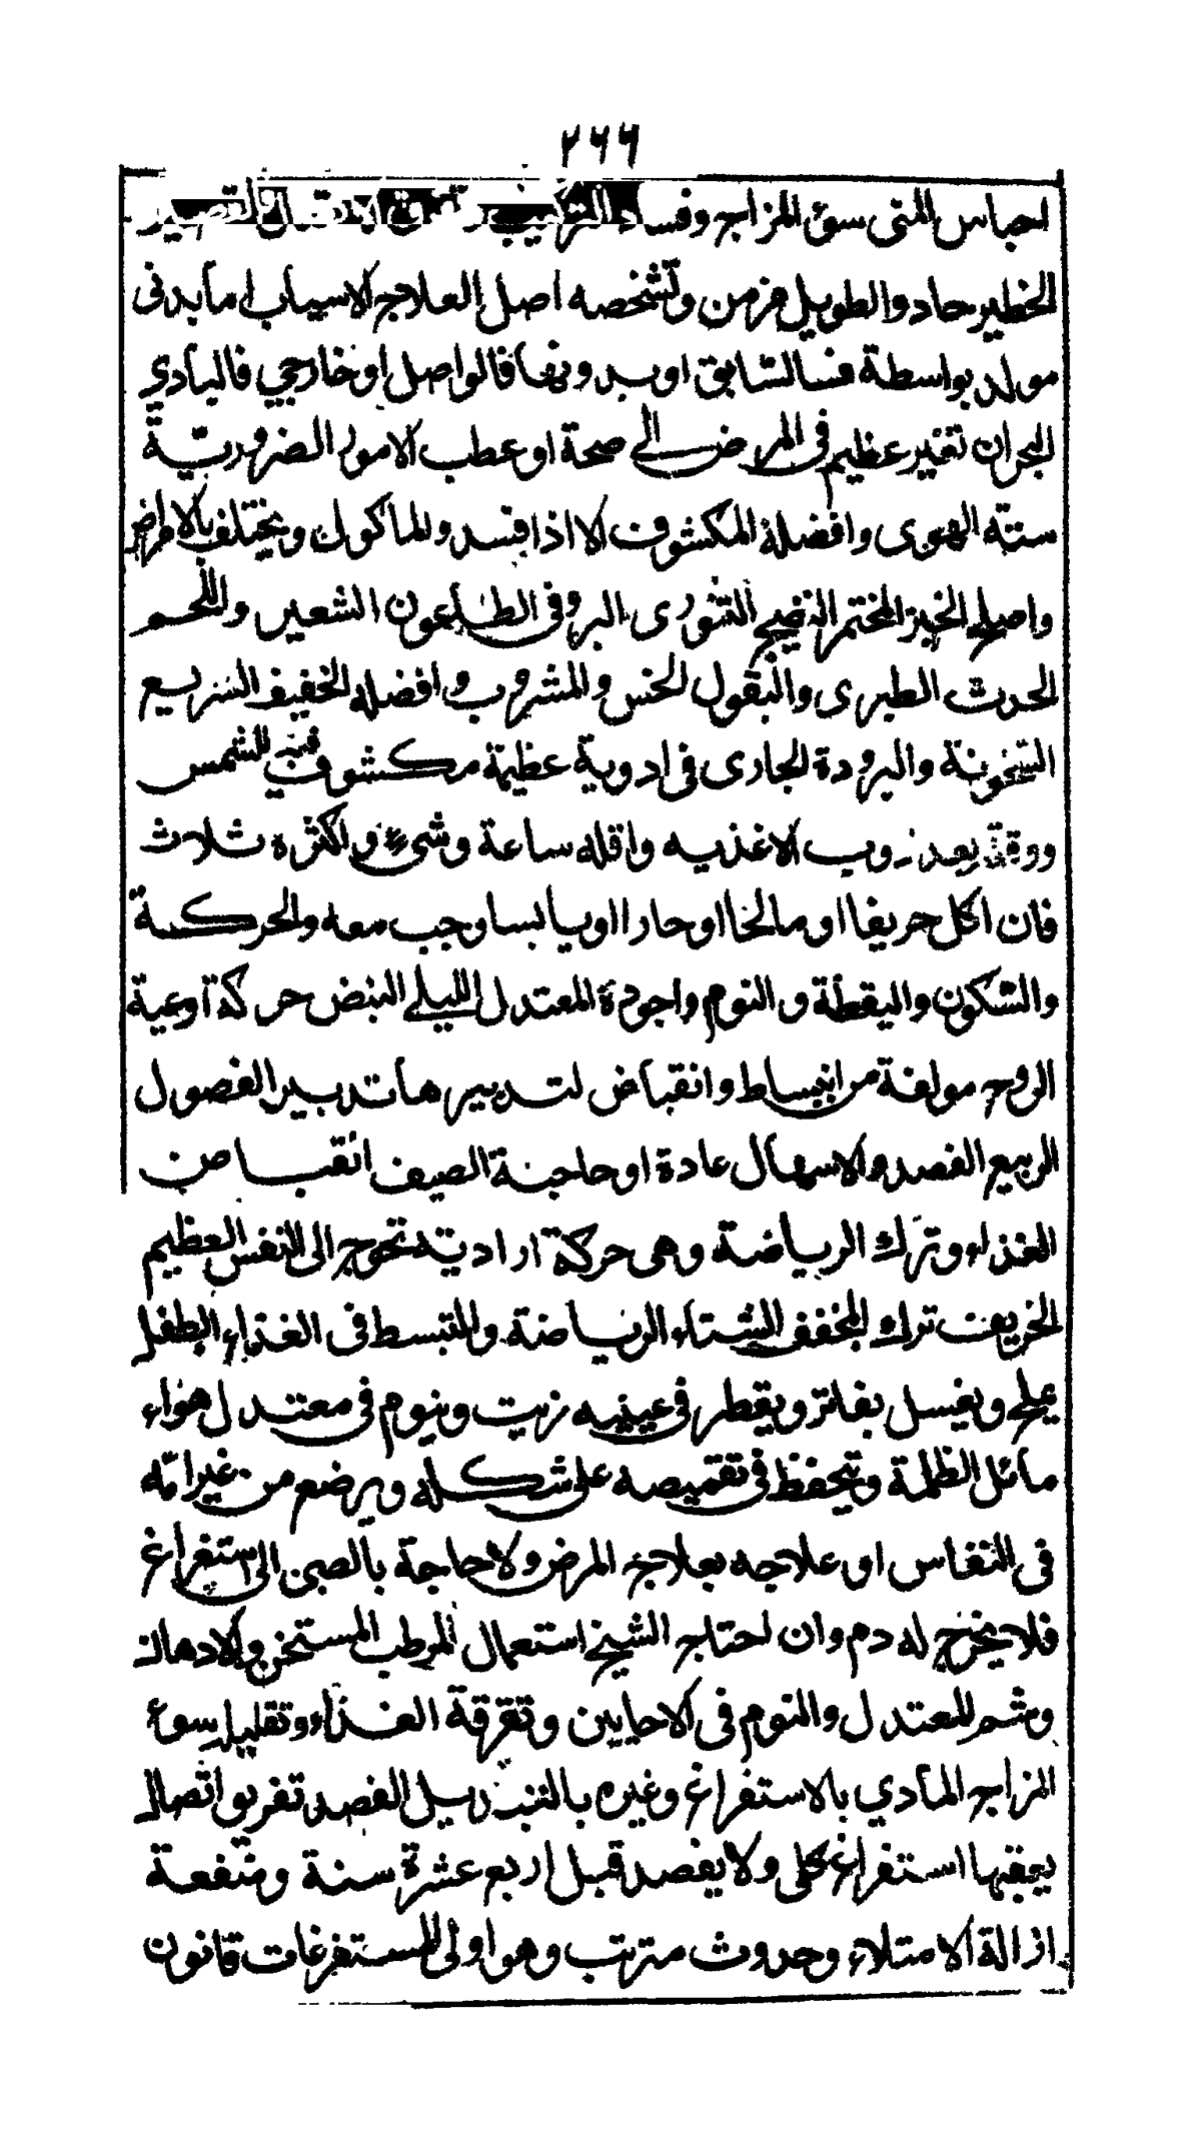 ٢٦٦
اجناس المتى سوئ المزاج وفساد التركيب وتفرق الاتصال والقصير
الخطير حاد والطويل مزمن وتشخصه اصل العلاج الاسباب اما بدنى
مولد بواسطة فسالسّابق او بدونها فالواصل او خارجي فالبادي
البحران تغير عظيم فى المرض الى صحة او عطب الامور الضروريّة
ستّة الهوى وافضله المكشوف الا اذا فسد والماكول ويختلف بالامراض
واصلحه الخبز المختمر النضيج التنورى البر وفى الطاعون الشعير واللحم
الحدث الطيرى والبقول الخس والمشروب وافضله الخفيف السّريع
السّخونة والبرودة الجارى فى اودية عظيمة مكشوف فيه للشمس
ووقته بعد ذوب الاغذيه واقله ساعة وشئ واكثره ثلاث
فان اكل حريفا او مالحا او حارا او يابسا وجب معه والحركة
والسّكون واليقظة والنوم واجوده المعتدل الليلى النبض حركة اوعية
الروح مولفة من انبساط وانقباض لتدبيرها تدبير الفصول
الربيع الفصد والاسهال عادة او حاجة الصيف انقباص
الغذاء وترك الرياضة وهى حركة اراديّة تحوج الى النفس العظيم
الخريف ترك المخفف الشتاء الرياضة والتبسط فى الغذاء الطفل
يملح ويغسل بفاتر ويقطر فى عينيه زيت وينوم فى معتدل هواء
مائل الظلمة ويتحفظ فى تقميصه على شكله ويرضع من غير امّه
فى النفاس او علاجه بعلاج المرض ولا حاجة بالصبى الى استفراغ
فلا يخرج له دم وان احتاج الشيخ استعمال المرطب المستخن والادهان
وشم المعتدل والنوم فى الاحايين وتفرقة الغذاء وتقليل سوء
المزاج المادي بالاستفراغ وغيره بالتبديل الفصد تفريق اتصال
يعقبها استفراغ كلى ولا يفصد قبل اربع عشرة سنة ومنفعة
ازالة الامتلاء وحدوث مترتب وهو اولى المستفرغات قانون